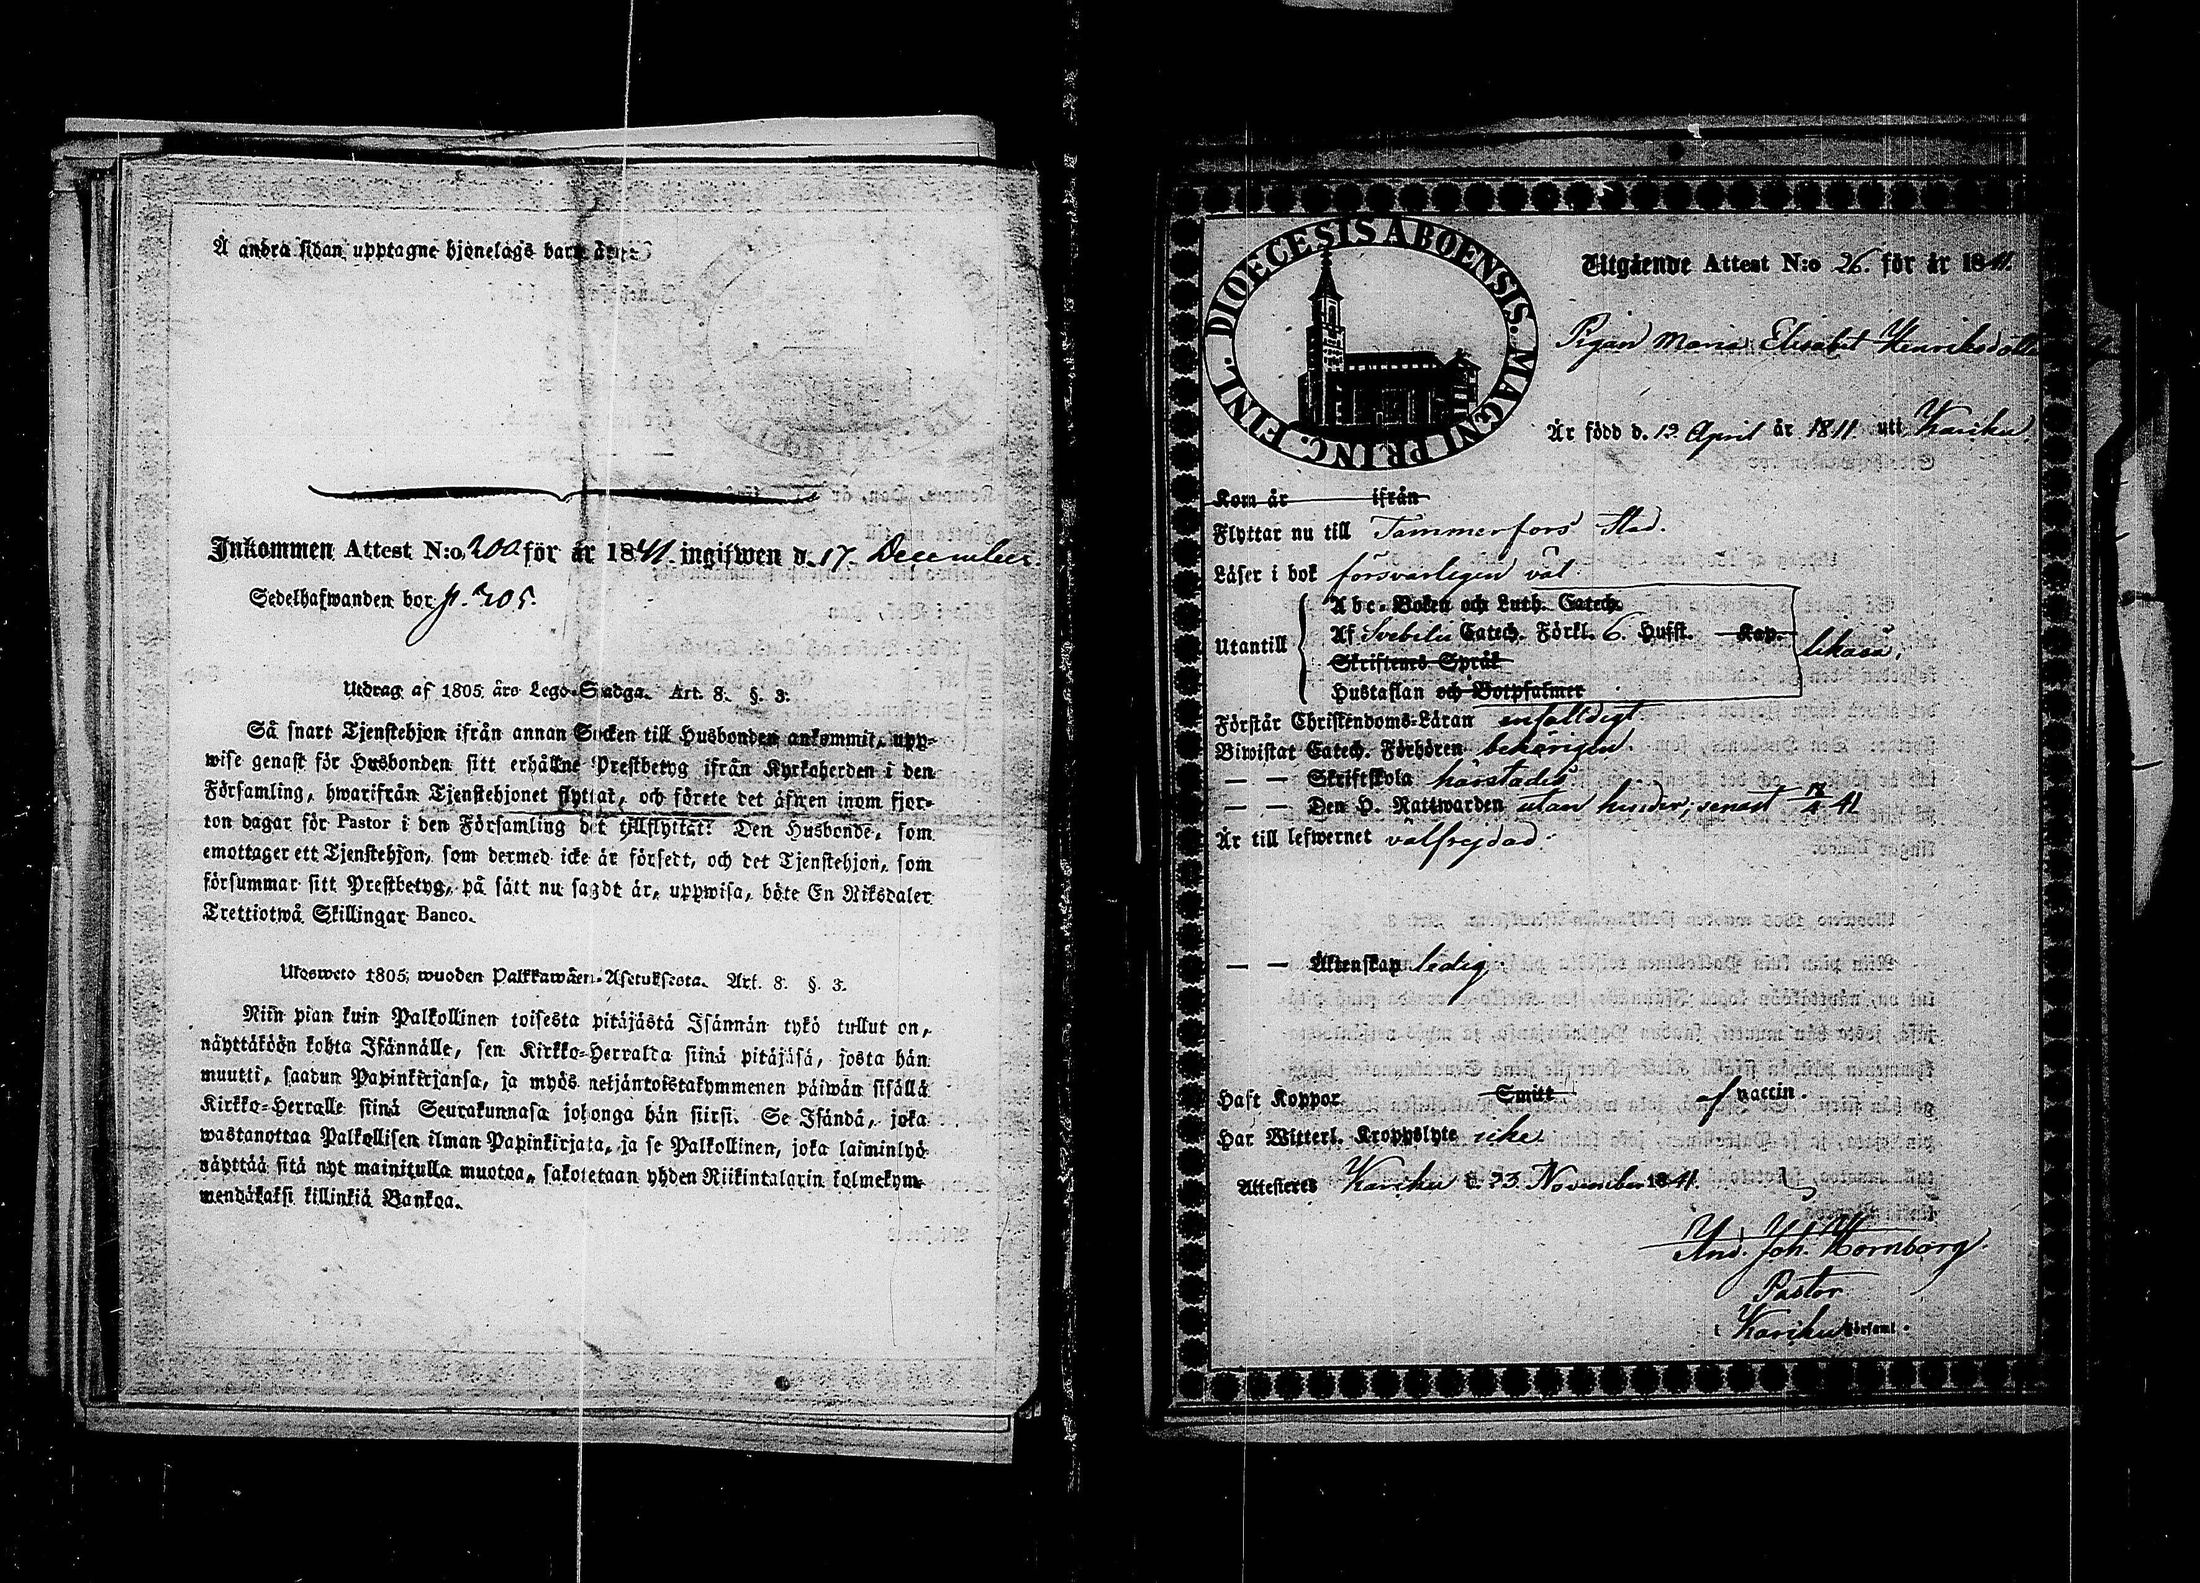 Å andra sidan upptagne hjonelags barn äro:
Inkommen Attest N:o 200 för år 1841. ingifwen d. 17. December.
Sedelhafwanden bor p. 205.
Utdrag af 1805 års Lego-Stadga. Art. 8. §. 3.
Så snart Tjenstehjon ifrån annan Socken till Husbonden ankommit, upp-
wise genast för Husbonden sitt erhållne Prestbetyg ifrån Kyrkoherden i den
Församling, hwarifrån Tjenstehjonet flyttat, och förete det äfwen inom fjor-
ton dagar för Pastor i den Församling dit tillflyttat: Den Husbonde, som
emottager ett Tjenstehjon, som dermed icke är försedt, och det Tjenstehjon, som
försummar sitt Prestbetyg, på sätt nu sagdt är, uppwisa, böte En Riksdaler
Trettiotwå Skillingar Banco.
Ulosweto 1805 wuoden Palkkawäen-Asetuksesta. Art. 8. §. 3.
Niin pian kuin Palkollinen toisesta pitäjästä Isännän tykö tullut on,
näyttäköön kohta Isännälle, sen Kirkko-Herralta siinä pitäjäsä, josta hän
muutti, saadun Papinkirjansa, ja myös neljäntoistakymmenen päiwän sisällä
Kirkko-Herralle siinä Seurakunnasa johonga hän siirsi. Se Isändä, joka
wastanottaa Palkollisen ilman Papinkirjata, ja se Palkollinen, joka laiminlyö
näyttää sitä nyt mainitulla muotoa, sakotetaan yhden Riikintalarin kolmekym-
mendäkaksi killinkiä Bankoa.
DIOECESIS ABOENSIS. MAGNI PRINC. FINL.
Utgående Attest N:o 26. för år 1841.
Pigan Maria Elisabet Henriksdotter
Är född d. 13 April år 1811 uti Kariku.
Kom år ifrån
Flyttar nu till Tammerfors Stad.
Läser i bok försvarligen väl
Abc-Boken och Luth. Catech.
Utantill Af Svebelii Catech. Förkl. 6. Hufst. Kap. likaså,
Skriftenes Språk
Hustaflan och Botpsalmer
Förstår Christendoms-Läran enfaldigt
Biwistat Catech. Förhören behörigen.
— — Skriftskola härstädes
— — Den H. Nattwarden utan hinder, senast 41
Är till lefwernet välfrejdad.
— — Äktenskap ledig
Haft Koppor Smitt af vaccin.
Har Witterl. Kroppslyte icke
Attesteres Kariku d. 23. November 1841.
And. Joh. Hornborg.
Pastor
i Kariku Församl.